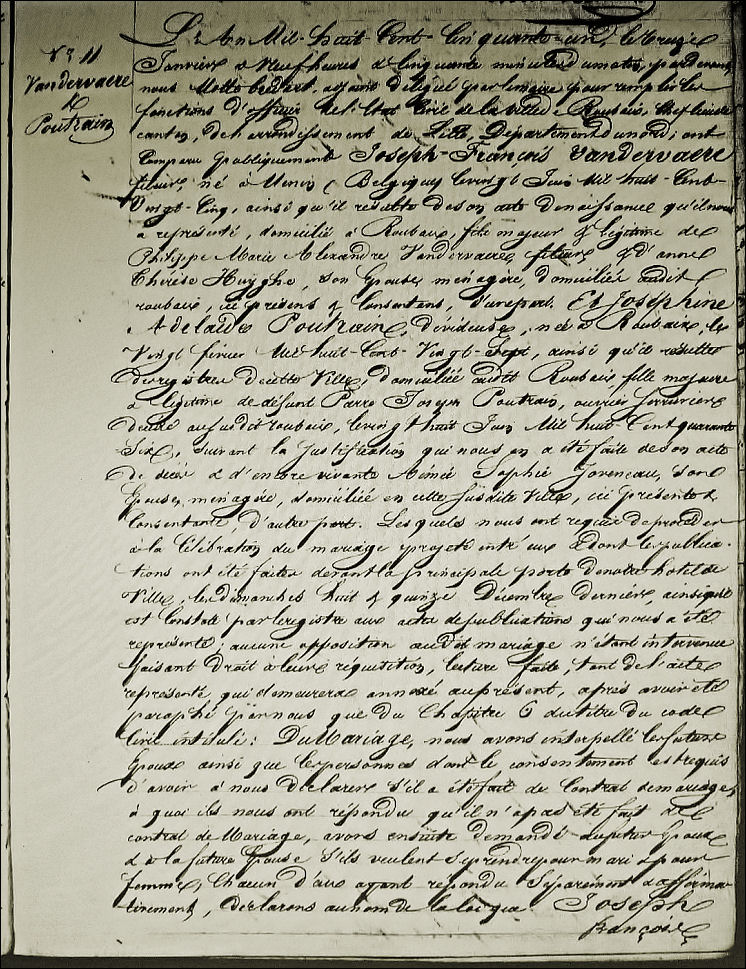 N° 11
Vandervaere
&
Poutrain
L'An Mil-huit-Cent-Cinquante-un, le treize
Janvier à Neuf heures & cinquante minutes du matin, pardevant
nous adjoint délégué par le maire pour remplir les
fonctions d'officier de l'Etat Civil de la ville de Roubaix, Chef lieu de
canton, de l'arrondissement de Lille, Département du nord, ont
Comparu publiquement Joseph-François Vandervaere
fileur, né à Menin (Belgique) le vingt Juin Mil-huit-Cent-
Vingt-Cinq, ainsi qu'il résulte de son acte de naissance qu'il nous
a représenté, domicilié à Roubaix, fils majeur & légitime de
Philippe Marie Alexandre Vandervaere, fileur & d'anne
Thérèse Huyghe, son Epouse, ménagère, domiciliés audit
roubaix, ici présens & Consentans, d'une part. Et Joséphine
Adelaïde Poutrain, dévideuse, née à Roubaix, le
Vingt février Mil-huit-Cent-Vingt-Sept, ainsi qu'il résulte
des registres de cette Ville, domiciliée audit Roubaix, fille majeure
& légitime de défunt Pierre Joseph Poutrain, ouvrier Serrurier
décédé au susdit roubaix, le vingt huit Juin Mil-huit-Cent quarante
Six, suivant la justification qui nous en a été faite de son acte
de décès & d'encore vivante Aimée Sophie Joveneau, son
Epouse, ménagère, domiciliée en cette susdite Ville, ici présente &
Consentante, d'autre part. Lesquels nous ont requis de procéder
à la Célébration du mariage projeté entr'eux & dont les publica-
tions ont été faites devant la principale porte de notre hôtel de
Ville, les dimanches huit & quinze Décembre dernier, ainsi qu'il
est Constaté par le registre aux actes de publications qui nous a été
représenté; aucune opposition audit mariage n'étant intervenue
faisant droit à leur réquisition, lecture faite, tant de l'acte
représenté qui demeurera annexé au présent, après avoir été
paraphé par nous que du Chapitre 6 du titre du code
Civil intitulé: Du Mariage, nous avons interpellé les futurs
Epoux ainsi que les personnes dont le consentement est requis
d'avoir à nous déclarer s'il a été fait de Contrat de mariage,
à quoi ils nous ont répondu qu'il n'a pas été fait de
contrat de Mariage, avons ensuite demandé au futur Epoux
& à la future Epouse s'ils veulent se prendre pour mari & pour
femme, Chacun d'eux ayant répondu Séparément & affirma-
tivement, déclarons au nom de la loi que Joseph
François